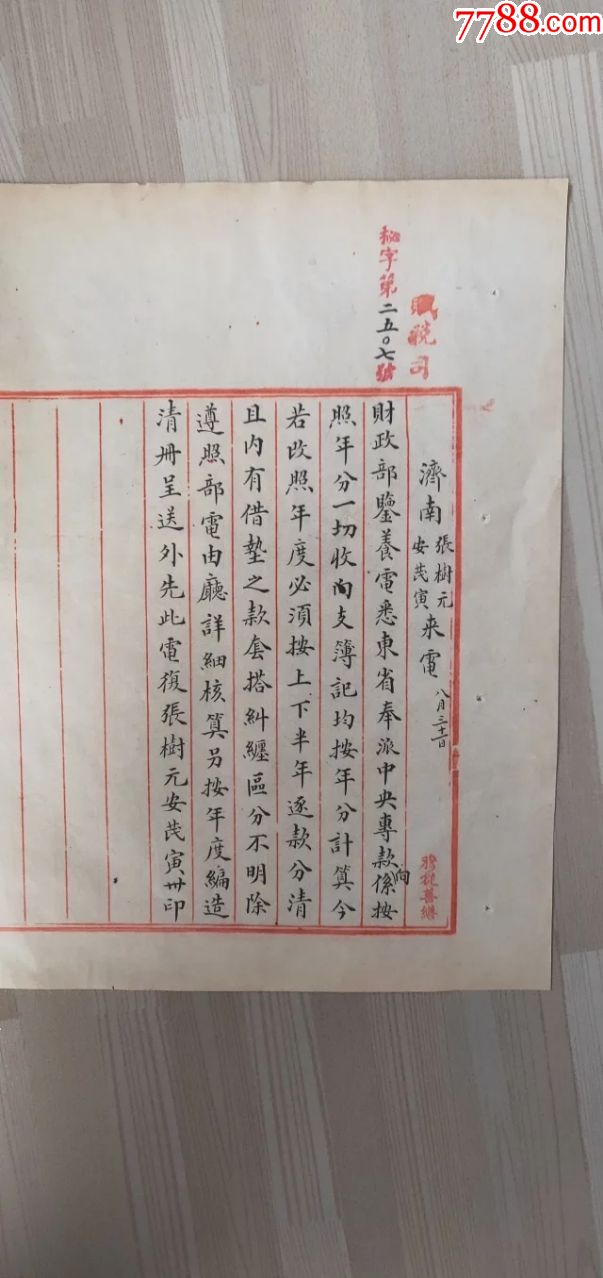 7788.com
賦税司
秘字第二五〇七號
濟南張樹元安茂寅来電八月三十一日
財政部鑒養電悉東省奉派中央專款向係按
照年分一切收支簿記均按年分計算今
若改照年度必須按上下半年逐款分清
且内有借墊之款套搭糾纏區分不明除
遵照部電由廳詳細核算另按年度編造
清册呈送外先此電復張樹元安茂寅卅印